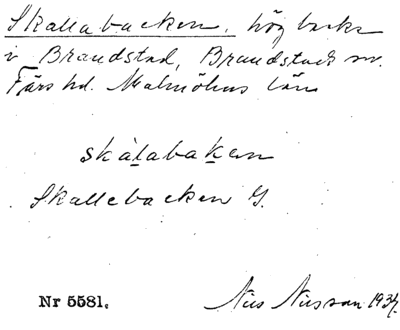 Skallabacken, hög backe
i Brandstad, Brandstads sn.
Färs hd. Malmöhus län
skàlabaken
Skallebacken G.
Nr 5581. Nils Nilsson 1934.